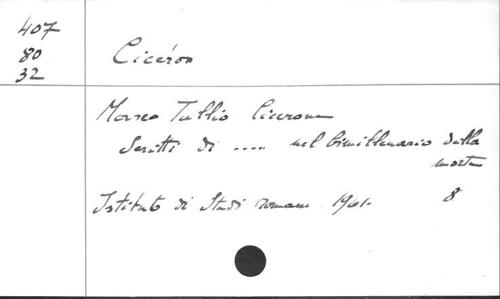 407
80
32
Cicéron
Marco Tullio Cicerone
Scritti di .... nel bimillenario della
morte
Istituto di Studi romani 1961.
8